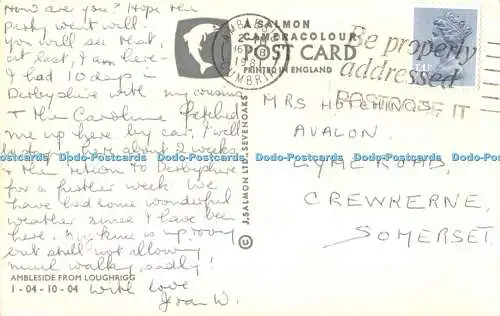 How are you? Hope the
party went well.
You will see that,
at last, I am here –
I had 10 days in
Derbyshire with my cousins
& the Caroline fetched
me up here by car. I will
be here about 2 weeks
& then return to Derbyshire
for a further week. We
have had some wonderful
weather since I have been
here. My knee is improving
but still not allowing
much walking, sadly!
With love
Joan W.
AMBLESIDE FROM LOUGHRIGG
1-04-10-04
A SALMON
CAMERACOLOUR
POST CARD
PRINTED IN ENGLAND
© J. SALMON LTD., SEVENOAKS
CUMBRIA
Be properly
addressed
POSTCODE IT
MRS HUTCHINGS,
AVALON,
LYME ROAD,
CREWKERNE,
SOMERSET.
Dodo-Postcards Dodo-Postcards Dodo-Postcards Dodo-Postcards Dodo-Postcards